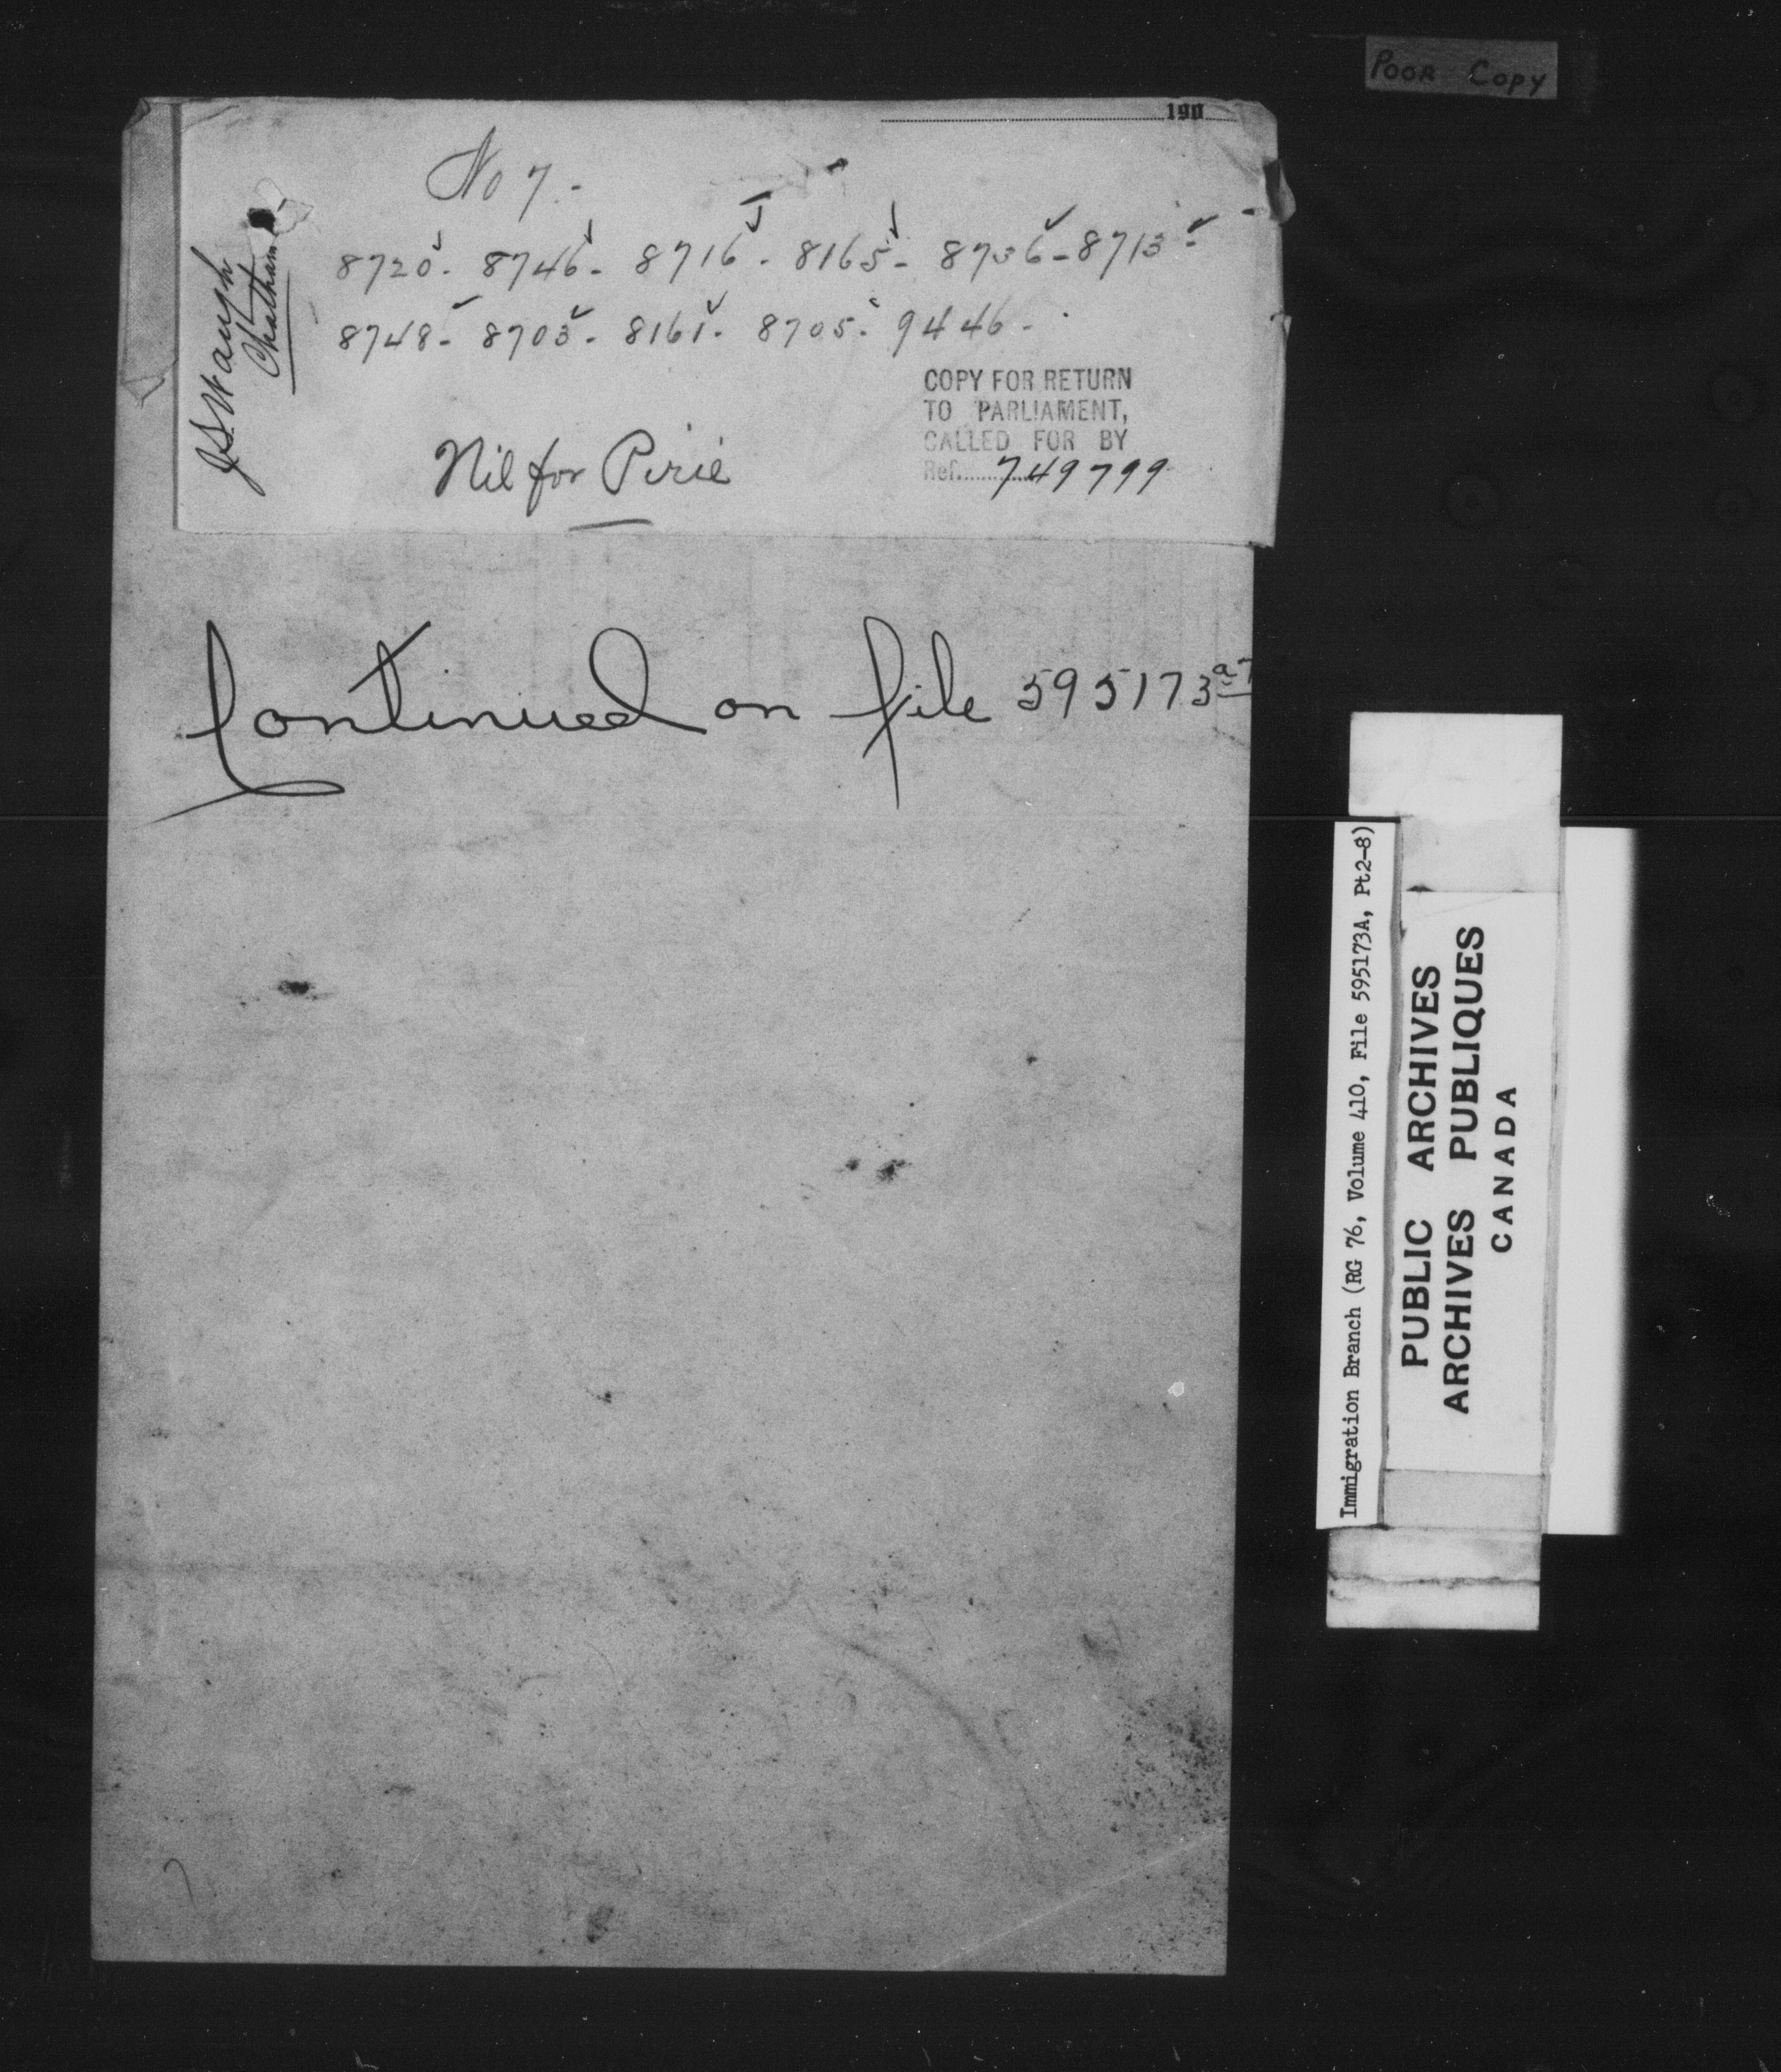 POOR COPY
190
No 7.-
8720- 8746- 8716- 8165- 8736-8713-
8748- 8703- 8161- 8705- 9446-
J.S. Waugh
Chatham
COPY FOR RETURN
TO PARLIAMENT,
CALLED FOR BY
Ref. 749799
Nil for Pirie
Continued on file 595173
Immigration Branch (RG 76, Volume 410, File 595173A, Pt2-8)
PUBLIC ARCHIVES
ARCHIVES PUBLIQUES
CANADA